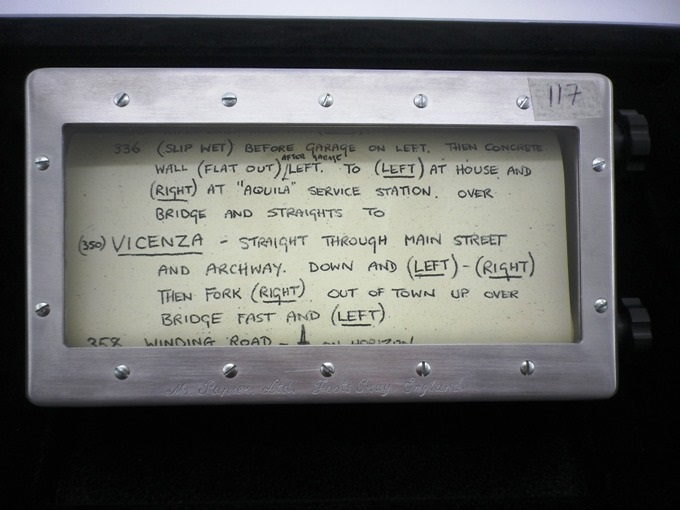 117
336 (SLIP WET) BEFORE GARAGE ON LEFT. THEN CONCRETE
AFTER GARAGE
WALL (FLAT OUT)/LEFT. TO (LEFT) AT HOUSE AND
(RIGHT) AT "AQUILA" SERVICE STATION. OVER
BRIDGE AND STRAIGHTS TO
(350) VICENZA - STRAIGHT THROUGH MAIN STREET
AND ARCHWAY. DOWN AND (LEFT)-(RIGHT)
THEN FORK (RIGHT) OUT OF TOWN UP OVER
BRIDGE FAST AND (LEFT)
358 WINDING ROAD - ON HORIZON
England